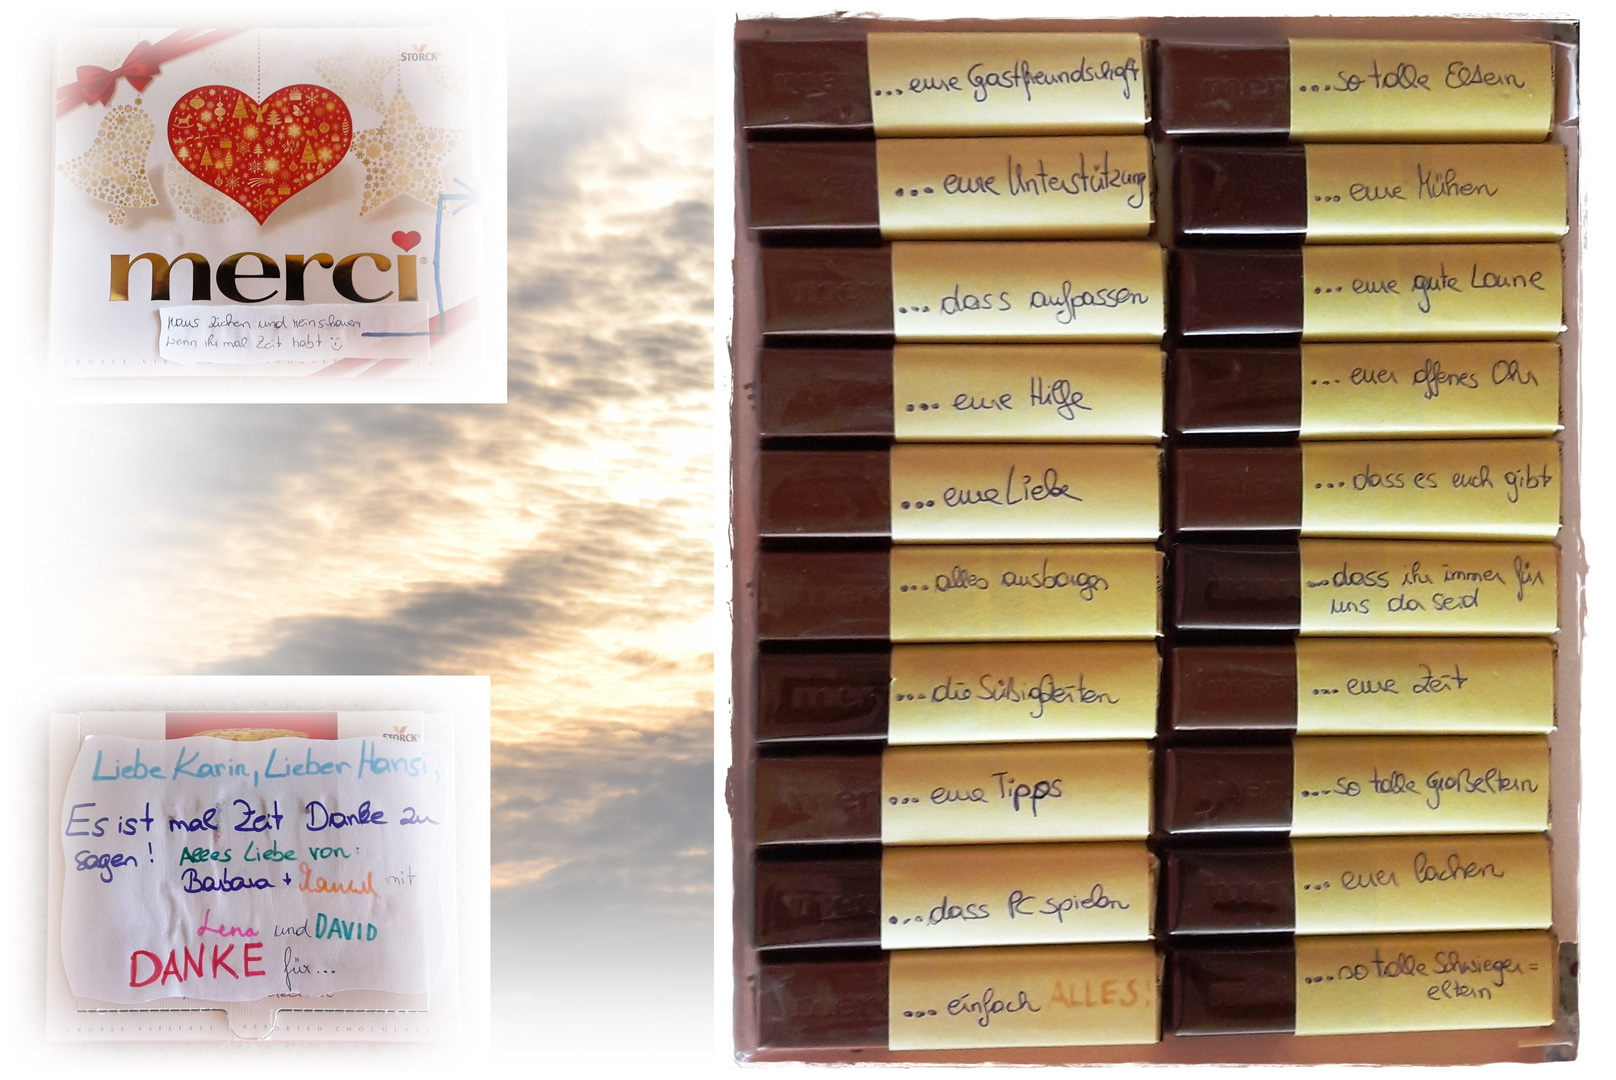 STORCK
merci
Raus ziehen und reinschauen
Wenn ihr mal Zeit habt
STORCK
Liebe Karin, Lieber Hansi,
Es ist mal Zeit Danke zu
sagen! Alles Liebe von:
Barbara + Manuel mit
Lena und DAVID
DANKE für...
...eure Gastfreundschaft
... eure Unterstützung
... dass aufpassen
... eure Hilfe
... eure Liebe
...alles ausborgen
...die Süßigkeiten
... eure Tipps
...dass PC spielen
... einfach ALLES!
...so tolle Eltern
... eure Mühen
... eure gute Laune
... euer offenes Ohr
...dass es euch gibt
...dass ihr immer für
uns da seid
... eure Zeit
...so tolle Großeltern
... euer lachen
...so tolle Schwieger=
eltern